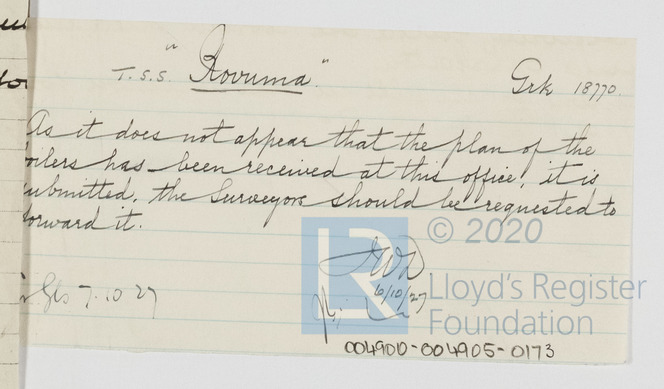 T.S.S. "Rovuma" Grk 18770.
As it does not appear that the plan of the
oilers has been received at this office, it is
submitted, the Surveyors should be requested to
forward it.
JWD
6/10/27
7.10.27
LR
© 2020
Lloyd's Register
Foundation
004900-004905-0173